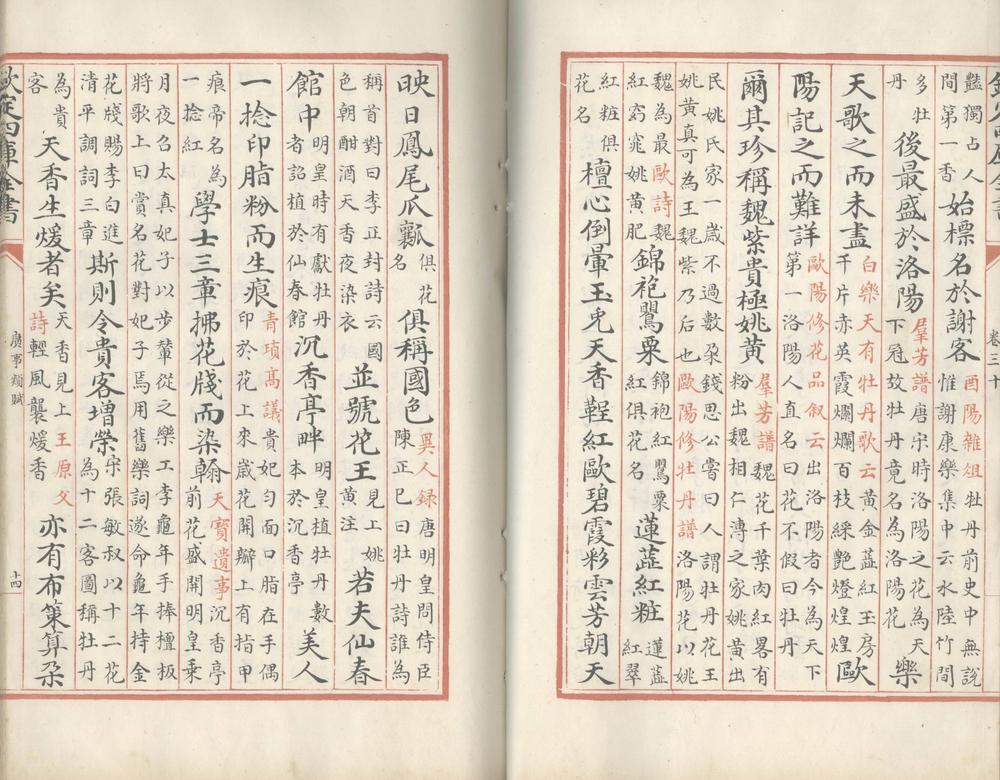 卷三十
豔獨占人間第一香始標名於謝客酉陽雜俎牡丹前史中無說惟謝康樂集中云水陸竹間
多牡丹後最盛於洛陽羣芳譜唐宋時洛陽之花為天下冠故牡丹竟名為洛陽花樂
天歌之而未盡白樂天有牡丹歌云黃金蕋紅玉房千片赤英霞爛爛百枝綵艷燈煌煌歐
陽記之而難詳歐陽修花品叙云出洛陽者今為天下第一洛陽人直名曰花不假曰牡丹
爾其珍稱魏紫貴極姚黃羣芳譜魏花千葉肉紅畧有粉出魏相仁溥之家姚黃出
民姚氏家一歲不過數朶錢思公嘗曰人謂牡丹花王姚黃真可為王魏紫乃后也歐陽修牡丹譜洛陽花以姚
魏為最歐詩魏紅窈窕姚黃肥錦袍鸎粟錦袍紅鸎粟紅俱花名蓮蕋紅粧蓮蕋紅翠
紅粧俱花名檀心倒暈玉兎天香鞓紅歐碧霞彩雲芳朝天
映日鳳尾瓜瓤俱花名俱稱國色異人録唐明皇問侍臣陳正已曰牡丹詩誰為
稱首對曰李正封詩云國色朝酣酒天香夜染衣並號花王見上姚黃注若夫仙春
館中明皇時有獻牡丹者詔植於仙春館沉香亭畔明皇植牡丹數本於沉香亭美人
一捻印脂粉而生痕青瑣高議貴妃匀面口脂在手偶印於花上來歲花開瓣上有指甲
痕帝名為一捻紅學士三章拂花牋而染翰天寶遺事沉香亭前花盛開明皇乘
月夜召太真妃子以步輦從之樂工李龜年手捧檀板將歌上曰賞名花對妃子焉用舊樂詞遂命龜年持金
花牋賜李白進清平調詞三章斯則令貴客增榮宋張敏叔以十二花為十二客圖稱牡丹
為貴客天香生煖者矣天香見上王原父詩輕風襲煖香亦有布筞算朶
欽定四庫全書
廣事類賦
十四